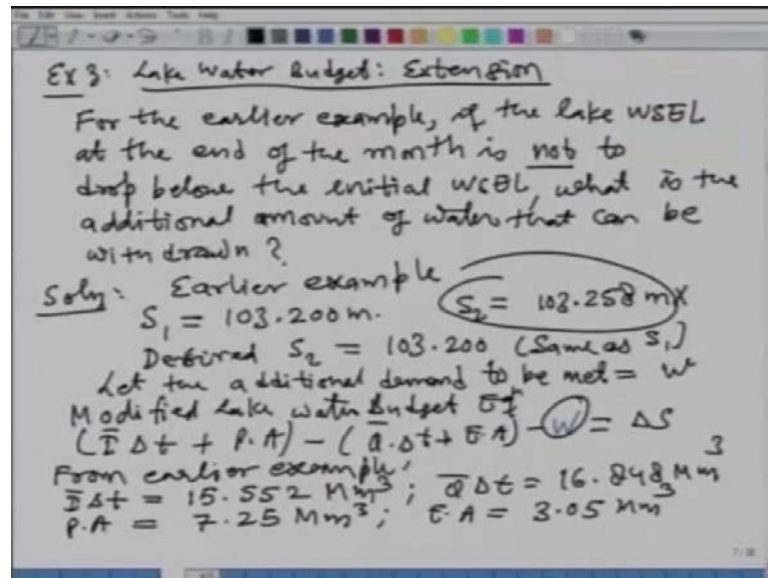 File Edit View Insert Actions Tools Help
Ex 3: Lake Water Budget: Extension
For the earlier example, if the lake WSEL
at the end of the month is not to
drop below the initial WSEL, what is the
additional amount of water that can be
withdrawn?
Soln: Earlier example
S₁ = 103.200 m. S₂ = 103.258 m X
Desired S₂ = 103.200 (Same as S₁)
Let the additional demand to be met = W
Modified Lake water Budget Eq
(I̅ Δt + P.A) - (Q̅.Δt + E.A) - W = ΔS
From earlier example,
I̅ Δt = 15.552 Mm³; Q̅ Δt = 16.848 Mm³
P.A = 7.25 Mm³; E.A = 3.05 Mm³